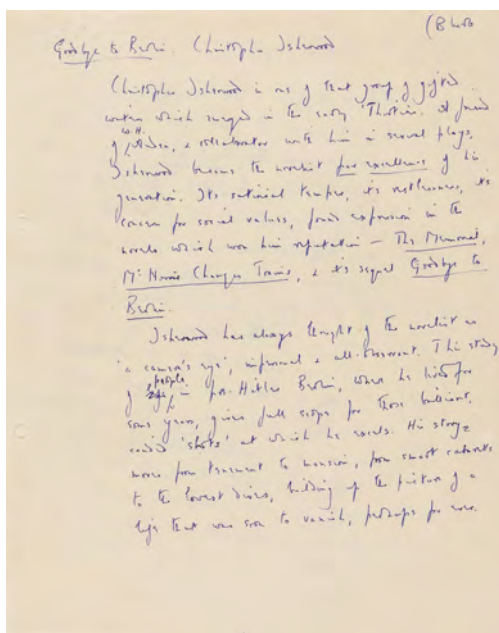 (Blurb
Goodbye to Berlin. Christopher Isherwood
Christopher Isherwood is one of that group of gifted
writers which emerged in the early 'Thirties. A friend
of W.H. Auden, & collaborator with him in several plays,
Isherwood became the novelist par excellence of his
generation. Its satirical temper, its restlessness, its
concern for social values, found expression in the
novels which won him reputation — The Memorial,
Mr Norris Changes Trains, & its sequel Goodbye to
Berlin.
Isherwood has always thought of the novelist as
'a camera's eye', impersonal & all-observant. This study
of people in pre-Hitler Berlin, where he lived for
some years, gives full scope for those brilliant,
candid 'shots' at which he excels. His story
moves from tenement to mansion, from smart cabarets
to the lowest dives, building up the picture of a
life that was soon to vanish, perhaps for ever.